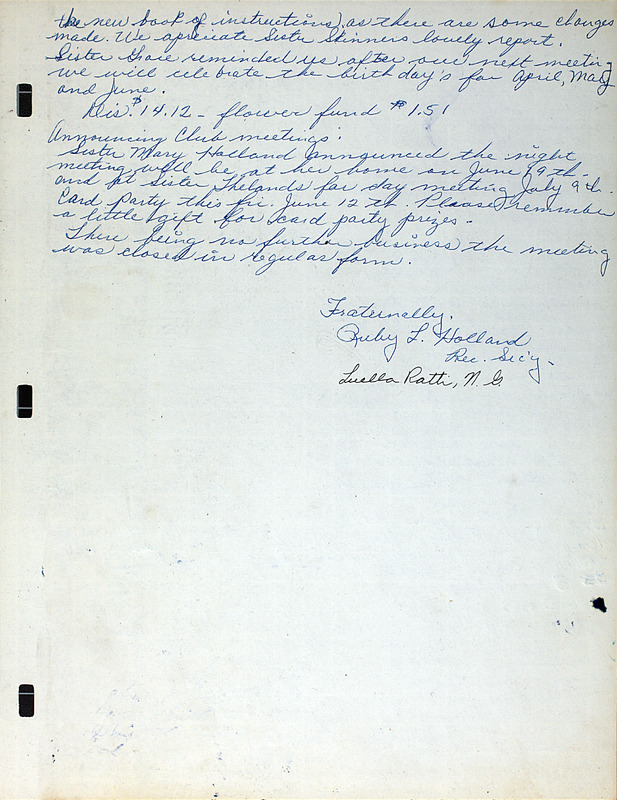 the new book of instructions), as there are some changes
made. We apreciate Sister Skinners lovely report.
Sister Gore reminded us after our next meeting
we will celebrate the birthday's for April, May
and June.
Dis. $14.12 - flower fund $1.51
Announcing Club meetings:
Sister Mary Holland announced the night
meeting will be at her home on June 19th -
and at Sister Shelands for day meeting July 9th.
Card Party this fri. June 12th. Please remember
a little gift for card party prizes -
There being no further business the meeting
was closed in regular form.
Fraternally,
Ruby L. Holland
Rec. Sec'y -
Luella Rath, N. G